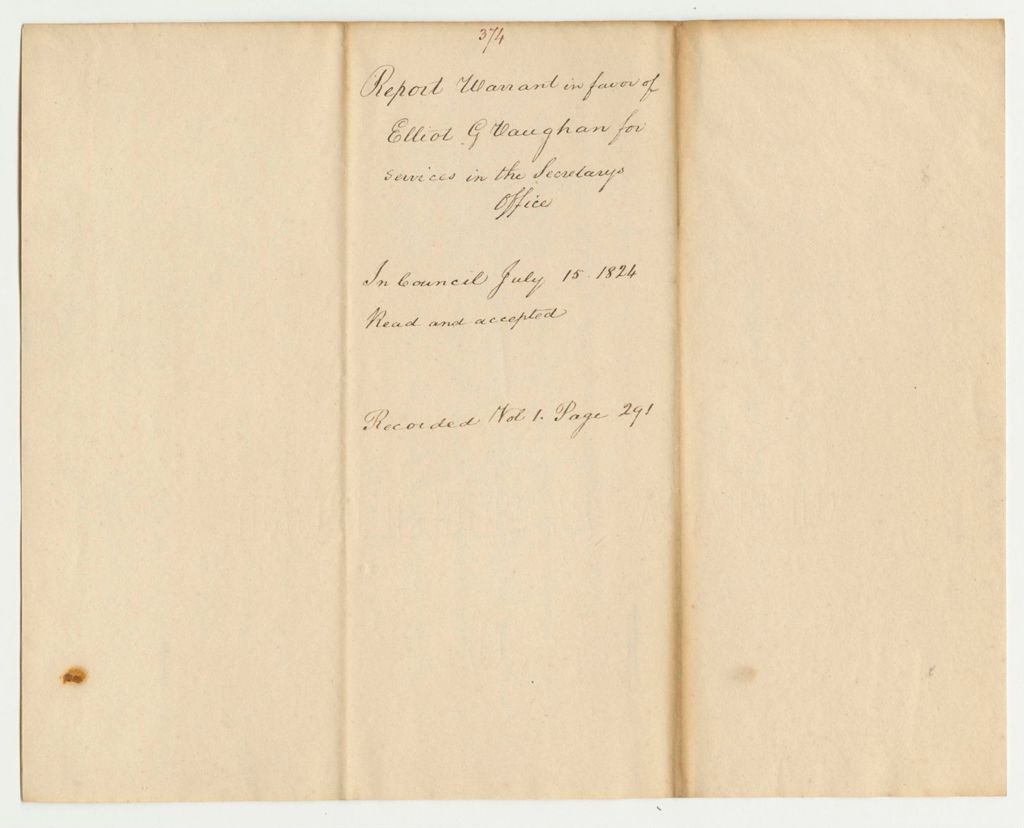 374
Report Warrant in favor of
Elliot G Vaughan for
services in the Secretarys
Office
In Council July 15. 1824
Read and accepted
Recorded Vol 1. Page 291